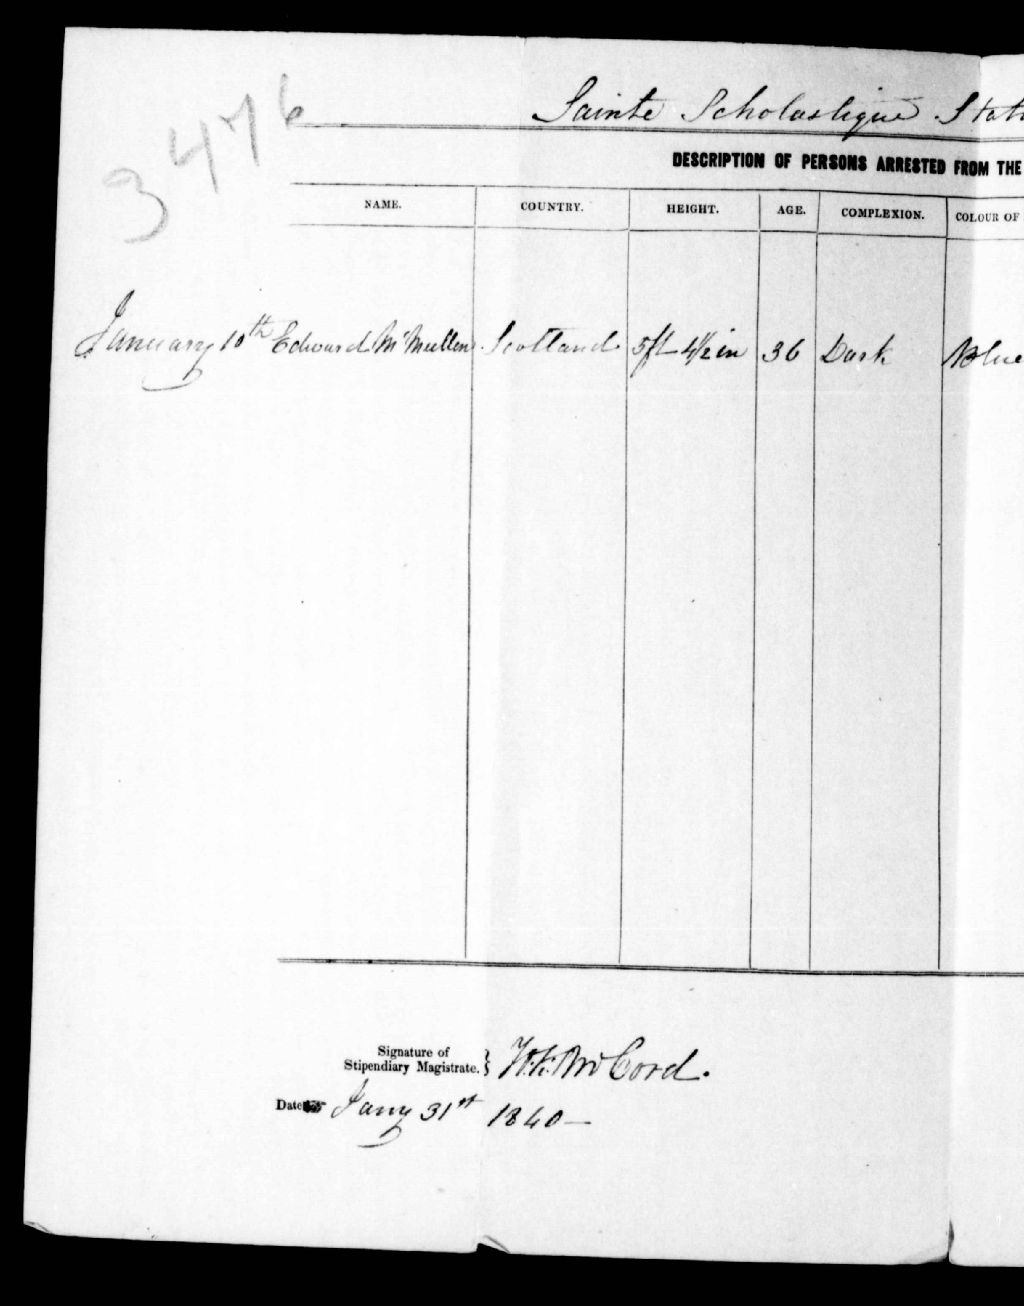 3476
Sainte Scholastique Stati
DESCRIPTION OF PERSONS ARRESTED FROM THE
NAME. COUNTRY. HEIGHT. AGE. COMPLEXION. COLOUR OF
January 10th Edward McMullen Scotland 5ft 4½in 36 Dark Blue
Signature of
Stipendiary Magistrate. McCord.
Date Jany 31st 1840—